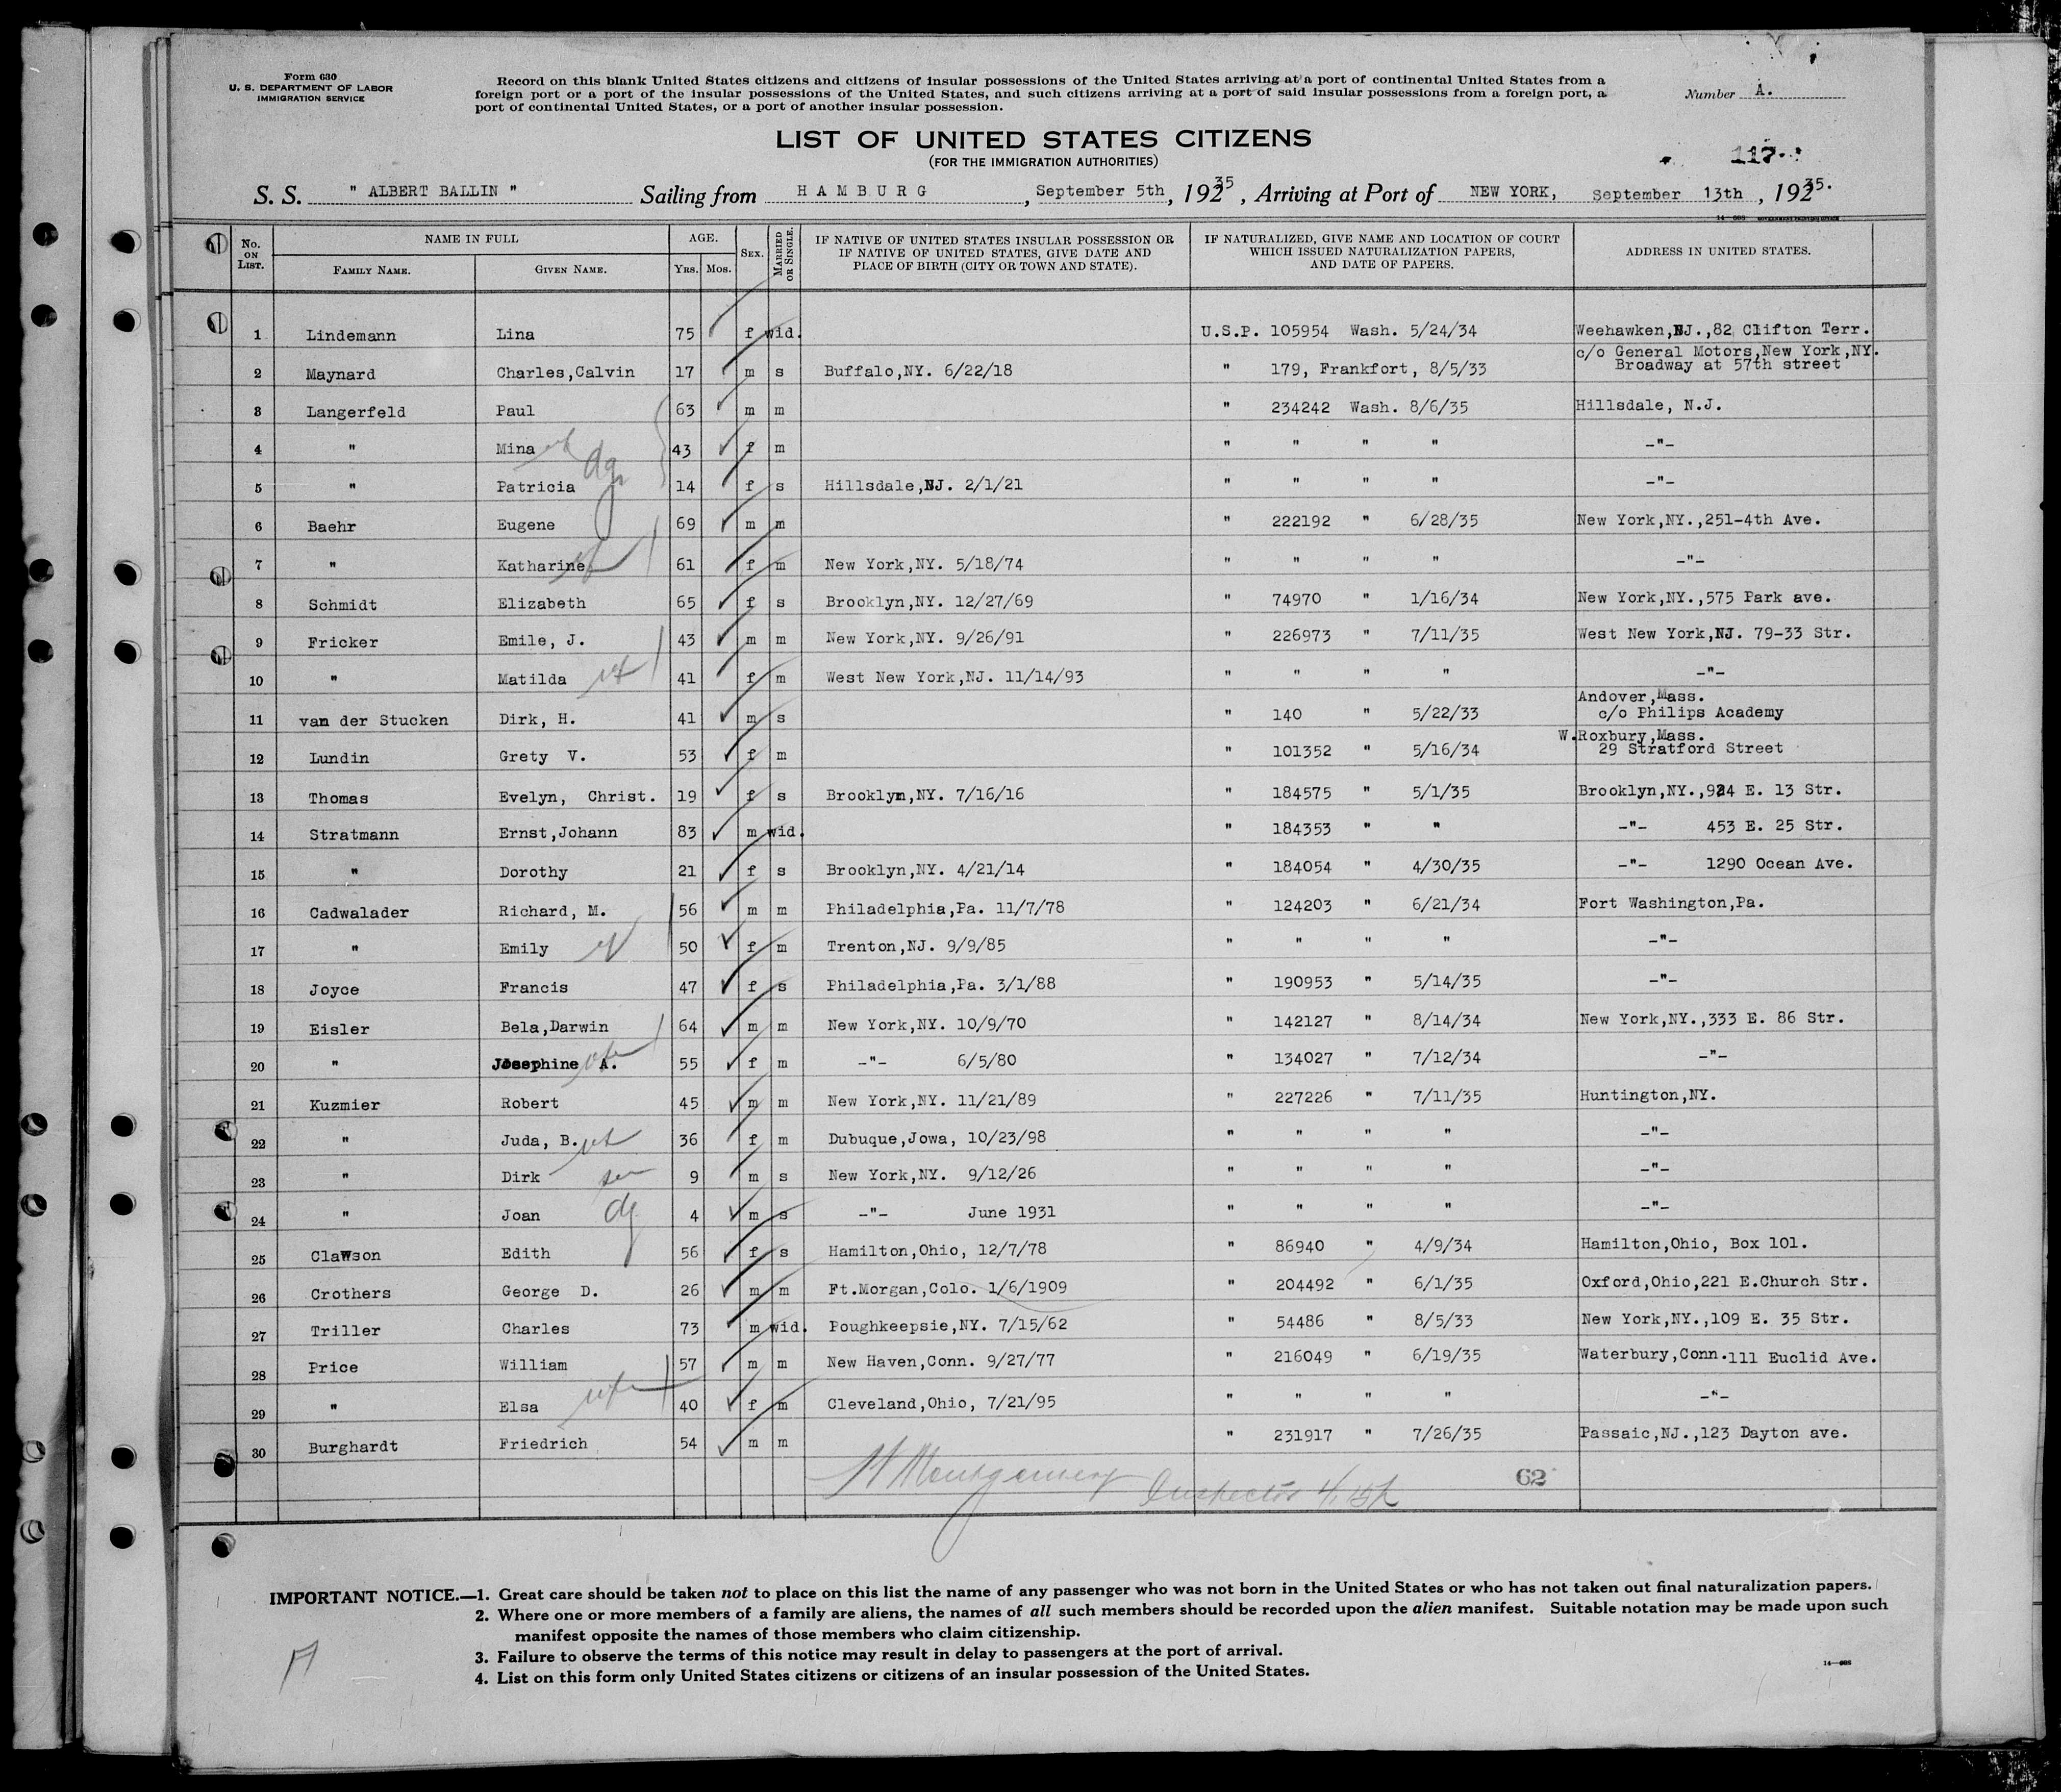 Form 630
U. S. DEPARTMENT OF LABOR
IMMIGRATION SERVICE
Record on this blank United States citizens and citizens of insular possessions of the United States arriving at a port of continental United States from a
foreign port or a port of the insular possessions of the United States, and such citizens arriving at a port of said insular possessions from a foreign port, a
port of continental United States, or a port of another insular possession.
Number A.
LIST OF UNITED STATES CITIZENS
(FOR THE IMMIGRATION AUTHORITIES)
117.
S. S. " ALBERT BALLIN " Sailing from HAMBURG, September 5th, 19235, Arriving at Port of NEW YORK, September 13th, 19235.
No. ON LIST. NAME IN FULL FAMILY NAME. GIVEN NAME. AGE. YRS. MOS. SEX. MARRIED OR SINGLE. IF NATIVE OF UNITED STATES INSULAR POSSESSION OR IF NATIVE OF UNITED STATES, GIVE DATE AND PLACE OF BIRTH (CITY OR TOWN AND STATE). IF NATURALIZED, GIVE NAME AND LOCATION OF COURT WHICH ISSUED NATURALIZATION PAPERS, AND DATE OF PAPERS. ADDRESS IN UNITED STATES.
1 Lindemann Lina 75 f wid. U.S.P. 105954 Wash. 5/24/34 Weehawken,NJ.,82 Clifton Terr.
2 Maynard Charles,Calvin 17 m s Buffalo,NY. 6/22/18 " 179, Frankfort, 8/5/33 c/o General Motors,New York,NY. Broadway at 57th street
3 Langerfeld Paul 63 m m " 234242 Wash. 8/6/35 Hillsdale, N.J.
4 " Mina 43 f m " " " " -"-
5 " Patricia 14 f s Hillsdale,NJ. 2/1/21 " " " " -"-
6 Baehr Eugene 69 m m " 222192 " 6/28/35 New York,NY.,251-4th Ave.
7 " Katharine 61 f m New York,NY. 5/18/74 " " " " -"-
8 Schmidt Elizabeth 65 f s Brooklyn,NY. 12/27/69 " 74970 " 1/16/34 New York,NY.,575 Park ave.
9 Fricker Emile, J. 43 m m New York,NY. 9/26/91 " 226973 " 7/11/35 West New York,NJ. 79-33 Str.
10 " Matilda 41 f m West New York,NJ. 11/14/93 " " " " -"-
11 van der Stucken Dirk, H. 41 m s " 140 " 5/22/33 Andover,Mass. c/o Philips Academy
12 Lundin Grety V. 53 f m " 101352 " 5/16/34 W.Roxbury,Mass. 29 Stratford Street
13 Thomas Evelyn, Christ. 19 f s Brooklyn,NY. 7/16/16 " 184575 " 5/1/35 Brooklyn,NY.,924 E. 13 Str.
14 Stratmann Ernst,Johann 83 m wid. " 184353 " " -"- 453 E. 25 Str.
15 " Dorothy 21 f s Brooklyn,NY. 4/21/14 " 184054 " 4/30/35 -"- 1290 Ocean Ave.
16 Cadwalader Richard, M. 56 m m Philadelphia,Pa. 11/7/78 " 124203 " 6/21/34 Fort Washington,Pa.
17 " Emily 50 f m Trenton,NJ. 9/9/85 " " " " -"-
18 Joyce Francis 47 f s Philadelphia,Pa. 3/1/88 " 190953 " 5/14/35 -"-
19 Eisler Bela,Darwin 64 m m New York,NY. 10/9/70 " 142127 " 8/14/34 New York,NY.,333 E. 86 Str.
20 " Josephine A. 55 f m -"- 6/5/80 " 134027 " 7/12/34 -"-
21 Kuzmier Robert 45 m m New York,NY. 11/21/89 " 227226 " 7/11/35 Huntington,NY.
22 " Juda, B. 36 f m Dubuque,Jowa, 10/23/98 " " " " -"-
23 " Dirk 9 m s New York,NY. 9/12/26 " " " " -"-
24 " Joan dg 4 m s -"- June 1931 " " " " -"-
25 Clawson Edith 56 f s Hamilton,Ohio, 12/7/78 " 86940 " 4/9/34 Hamilton,Ohio, Box 101.
26 Crothers George D. 26 m m Ft.Morgan,Colo. 1/6/1909 " 204492 " 6/1/35 Oxford,Ohio,221 E.Church Str.
27 Triller Charles 73 m wid. Poughkeepsie,NY. 7/15/62 " 54486 " 8/5/33 New York,NY.,109 E. 35 Str.
28 Price William 57 m m New Haven,Conn. 9/27/77 " 216049 " 6/19/35 Waterbury,Conn.111 Euclid Ave.
29 " Elsa 40 f m Cleveland,Ohio, 7/21/95 " " " " -"-
30 Burghardt Friedrich 54 m m " 231917 " 7/26/35 Passaic,NJ.,123 Dayton ave.
Montgomery Inspector 62
IMPORTANT NOTICE.—1. Great care should be taken not to place on this list the name of any passenger who was not born in the United States or who has not taken out final naturalization papers.
2. Where one or more members of a family are aliens, the names of all such members should be recorded upon the alien manifest. Suitable notation may be made upon such
manifest opposite the names of those members who claim citizenship.
3. Failure to observe the terms of this notice may result in delay to passengers at the port of arrival.
4. List on this form only United States citizens or citizens of an insular possession of the United States.